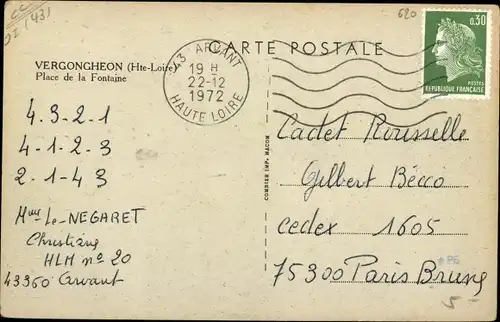 CC
(43)
620
CARTE POSTALE
0,30
POSTES
REPUBLIQUE FRANÇAISE
VERGONGHEON (Hte-Loire)
Place de la Fontaine
43 ARVANT
19 H
22-12
1972
HAUTE LOIRE
4.3.2.1
4.1.2.3
2.1.43
Mme Le-NEGARET
Christiane
HLM nº 20
43360 Arvant
COMBIER IMP. MACON
Cadet Rousselle
Gilbert Bécco
Cedex 1605
75300 Paris Brune
5-